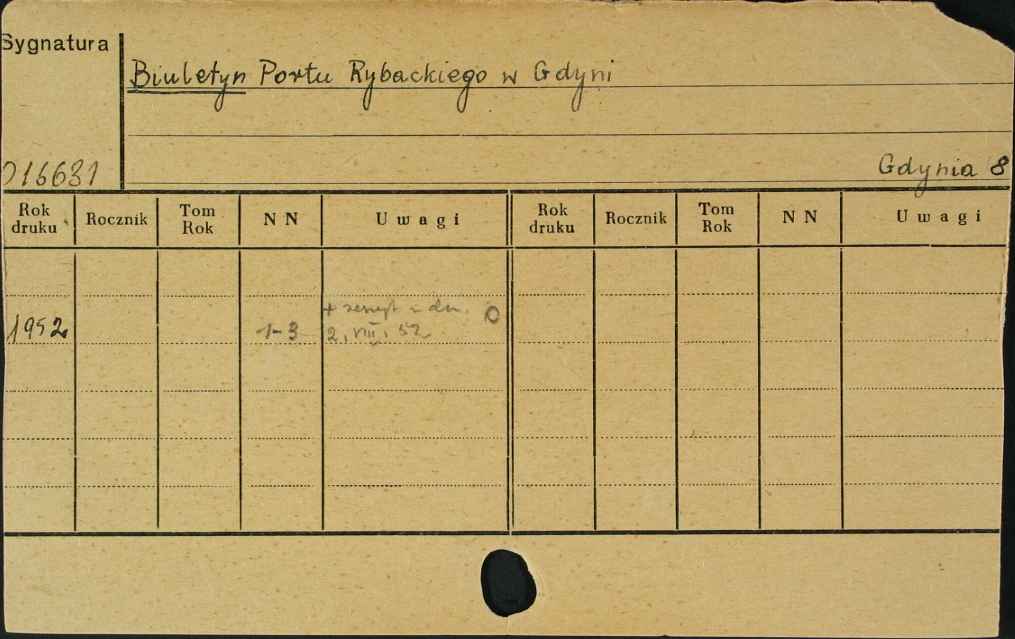 Sygnatura
Biuletyn Portu Rybackiego w Gdyni
016631
Gdynia 8
Rok druku Rocznik Tom Rok N N Uwagi Rok druku Rocznik Tom Rok N N Uwagi
+ zeszyt z dn. O
1952 1-3 2. VIII. 52